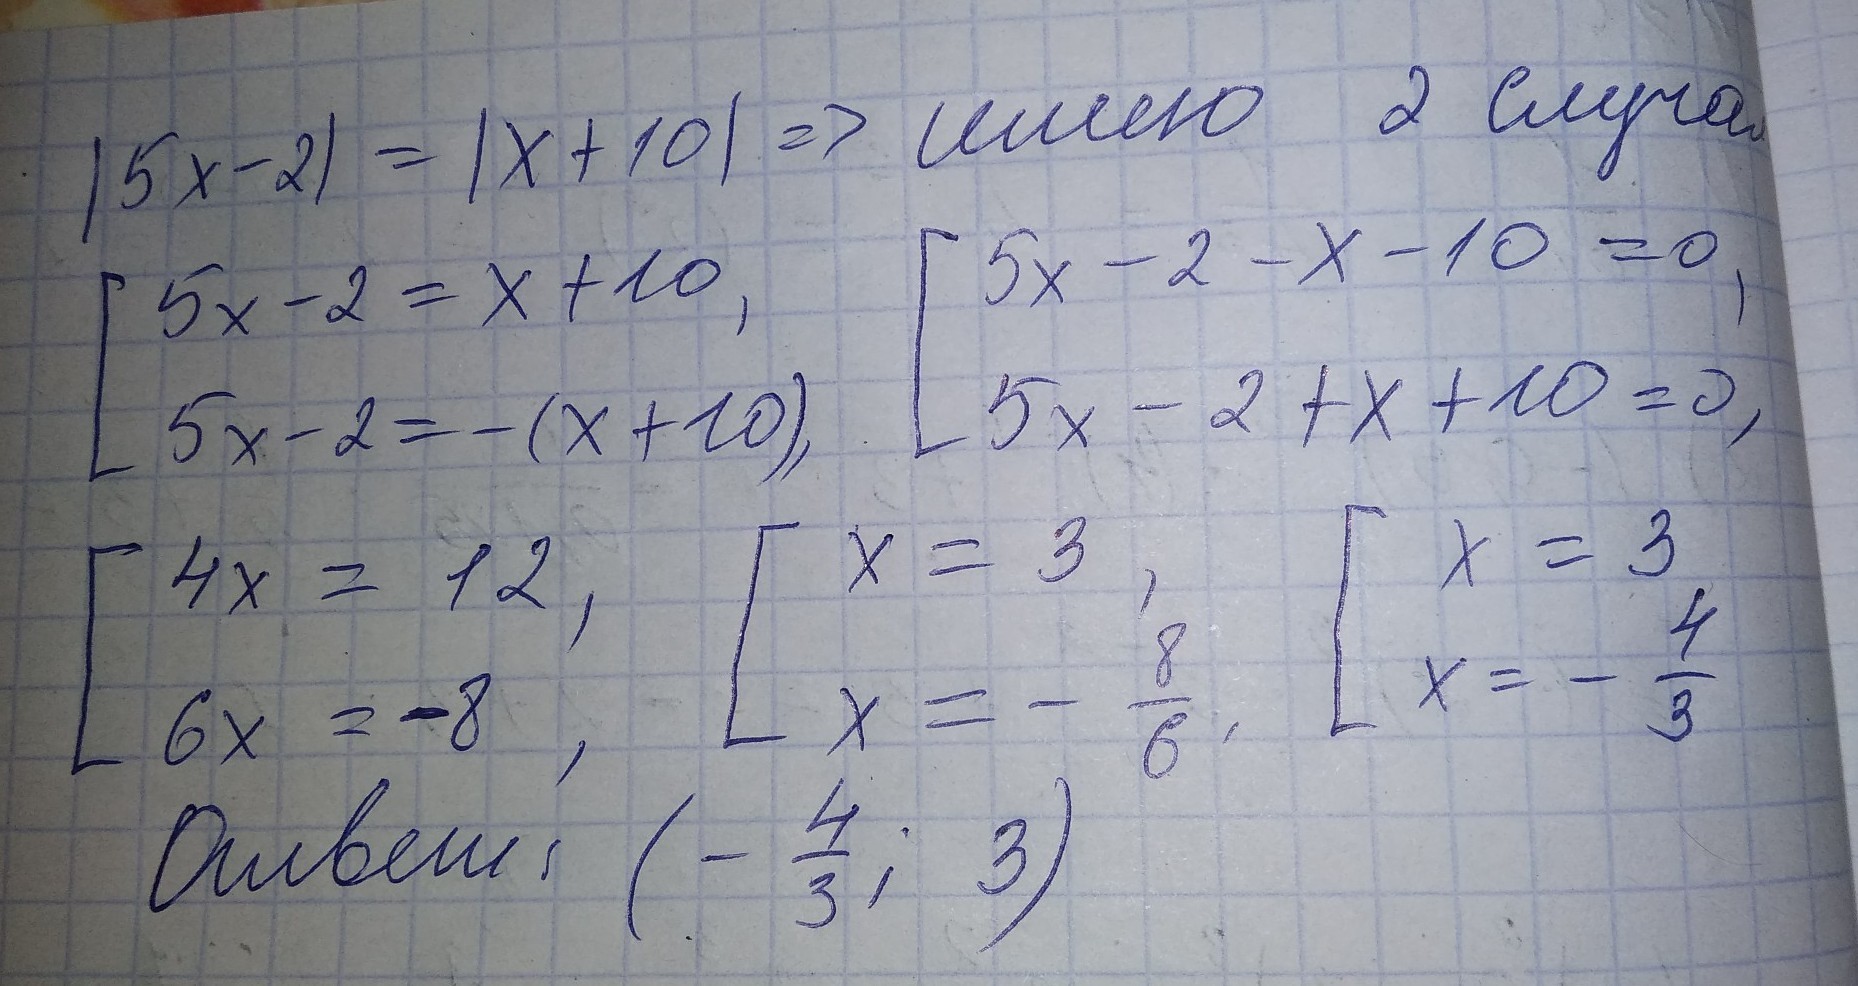 |5x-2| = |x+10| => имею 2 случа
[ 5x-2=x+10, [ 5x-2-x-10=0,
5x-2=-(x+10), 5x-2+x+10=0,
[ 4x=12, [ x=3, [ x=3
6x=-8, x=-8/6, x=-4/3
Ответ: (-4/3; 3)